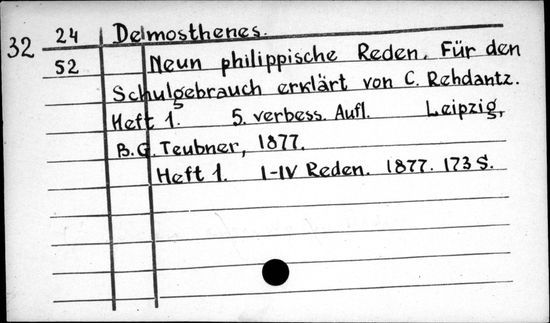 32 24 Demosthenes.
52 Neun philippische Reden. Für den
Schulgebrauch erklärt von C. Rehdantz.
Heft 1. 5. verbess. Aufl. Leipzig,
B.G. Teubner, 1877.
Heft 1. I-IV Reden. 1877. 173 S.